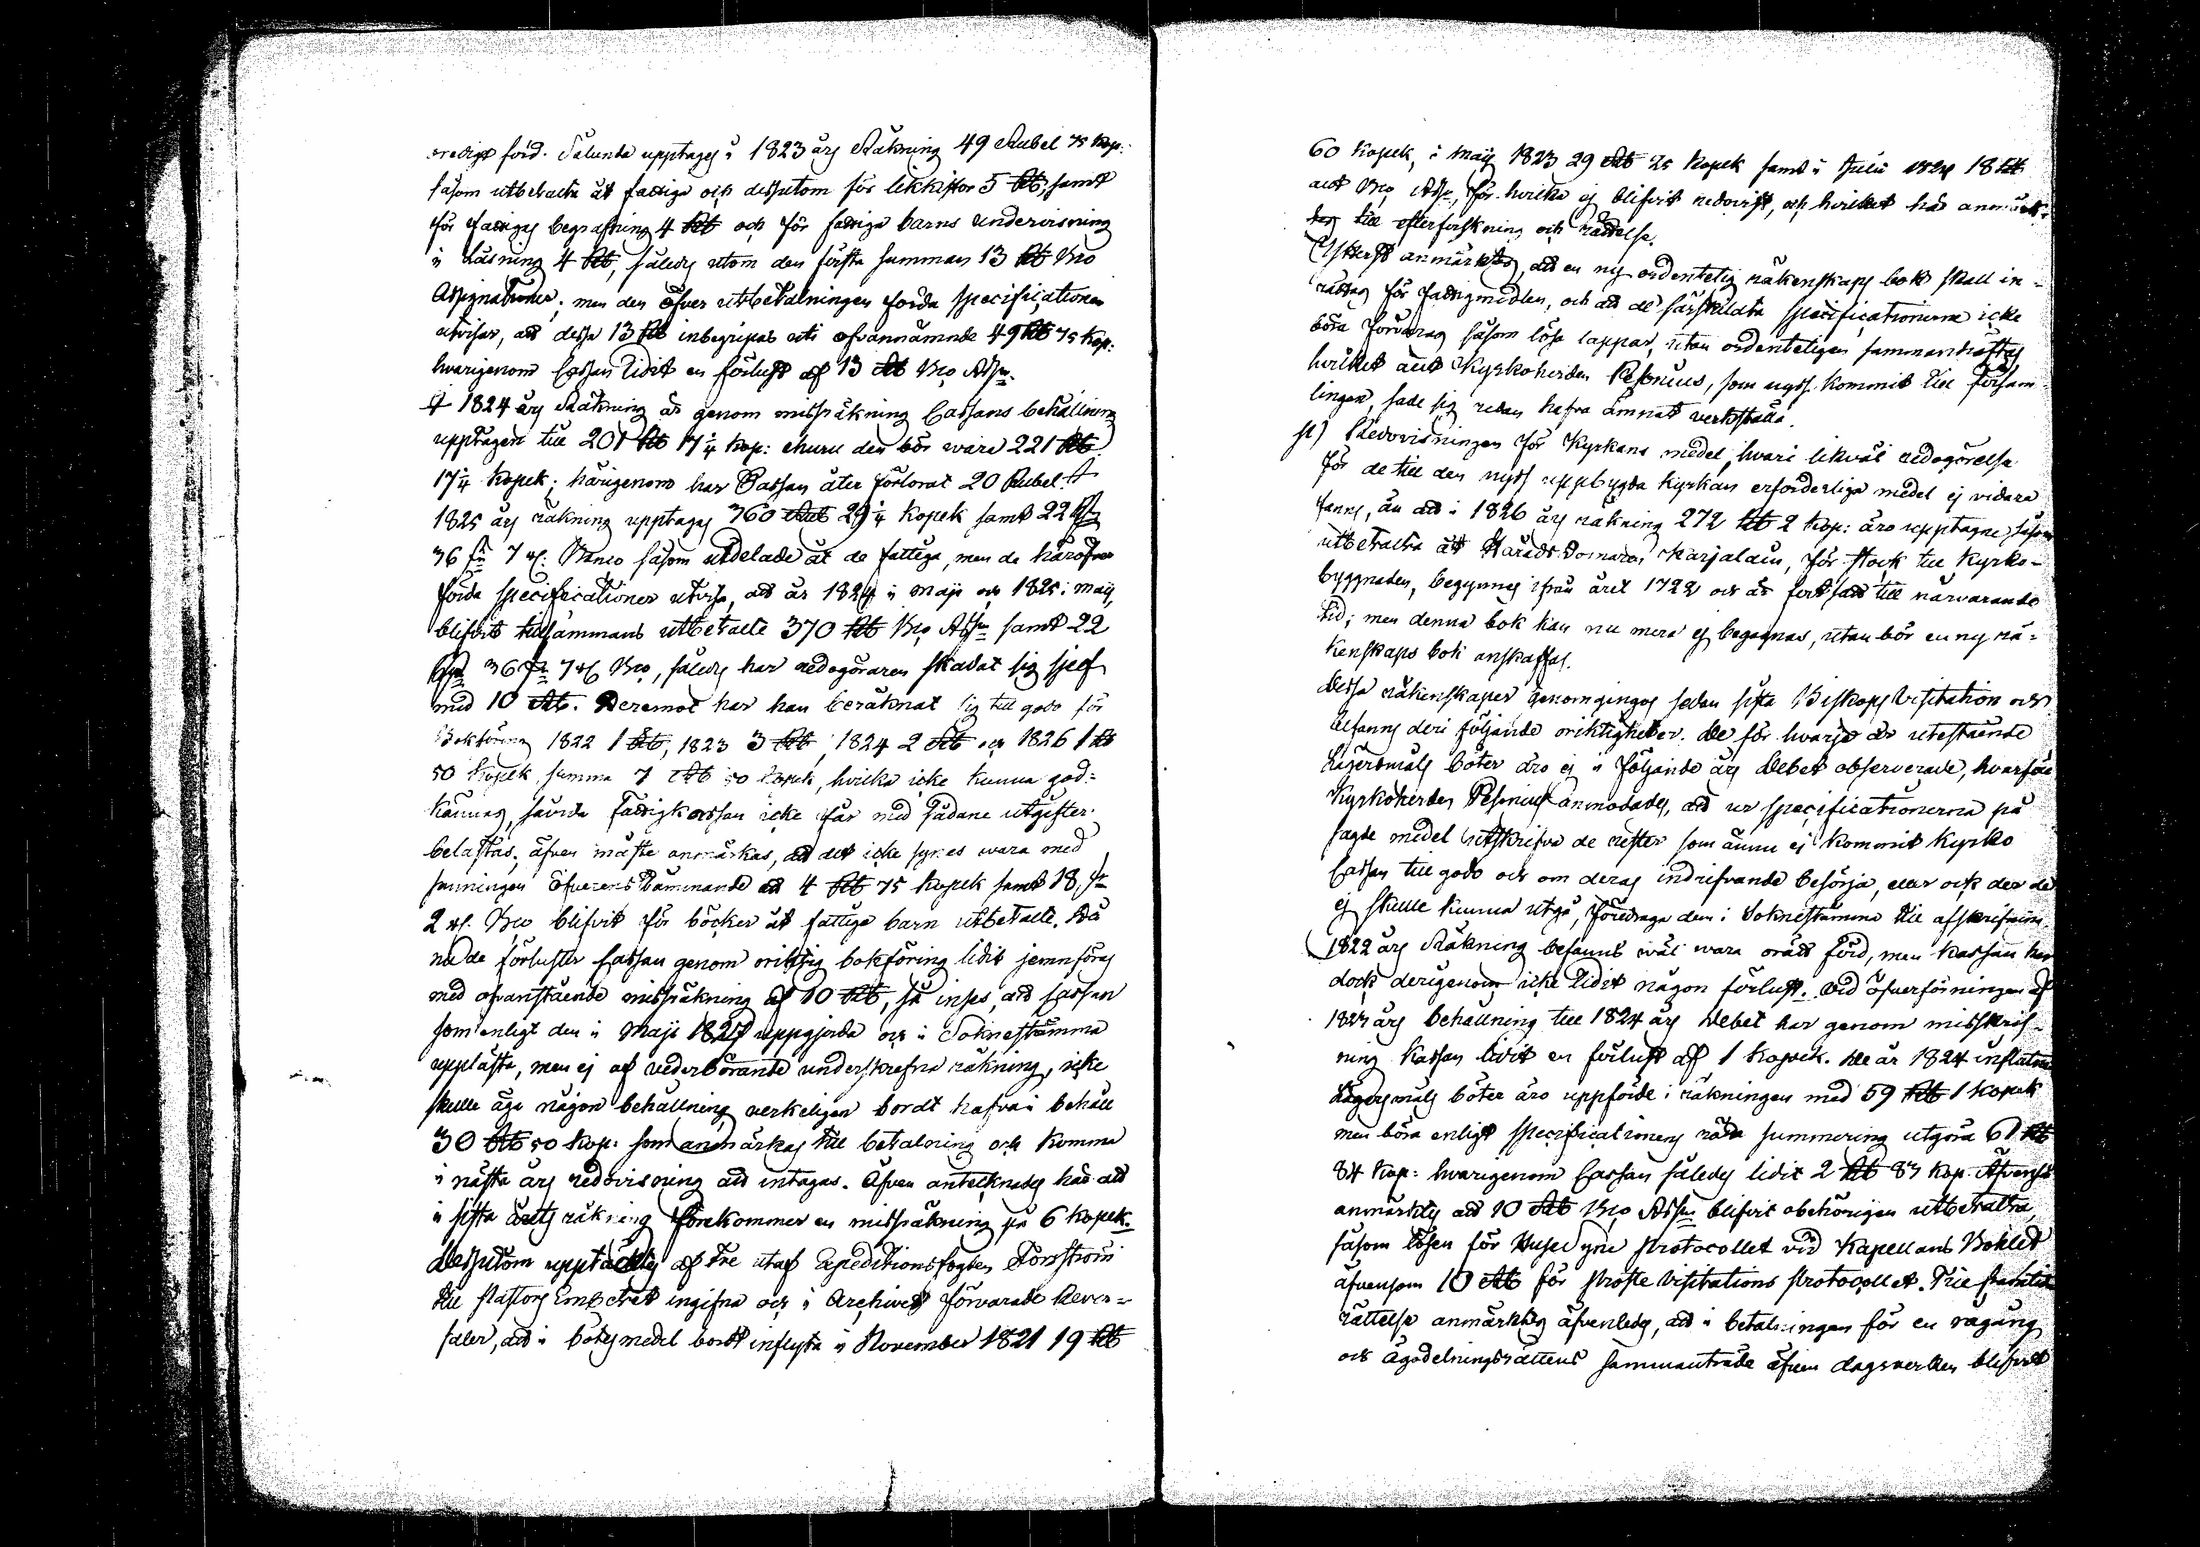 oredigt förd. Sålunda upptages i 1823 års Räkning 49 Rubel 75 kop:
såsom utbetalta åt fattiga och dessutom för likkistor 5 Rb, samt
för fattigas begrafning 4 Rb och för fattiga barns undervisning
i Läsning 4 Rb, således utom den första summan 13 Rb Bco
Assignationer; men den öfver utbetalningen förda specificationen
utvisar, att dessa 13 Rb inbegripas uti ofvannämnde 49 Rb 75 kop:
hvarigenom Cassan lidit en förlust af 13 Rb Bco Assr.
I 1824 års Räkning är genom missräkning Cassans behållning
upptagen till 201 Rb 17¼ kop: ehuru den bör wara 221 Rb
17¼ kopek; härigenom har Cassan åter förlorat 20 Rubel. I
1825 års räkning upptages 360 Rub 29¼ kopek samt 22
36 7 Banco såsom utdelade åt de fattiga, men de häröfver
förda specificationer utvisa, att år 1824 i maji och 1825 i maji,
blifvit tillsammans utbetalte 370 Rb Bco Assr samt 22
36 7 Bco, således har redogöraren skadat sig sjelf
med 10 Rb. Deremot har han beräknat sig till godo för
Bokföring 1822 1 Rb, 1823 3 Rb, 1824 2 Rb och 1826 1 Rb
50 kopek, summa 7 Rb 50 kopek, hvilka icke kunna god=
kännas, såvida Fattigkassan icke får med sådane utgifter
belastas; äfven måste anmärkas, att det icke synes wara med
sanningen öfverensstämmande att 4 Rb 75 kopek samt 18
2 Bco blifvit för böcker åt fattiga barn utbetalte. Då
nu de förluster Cassan genom oriktig bokföring lidit jemnföras
med ofvanstående missräkning af 10 Rb, så inses, att Cassan
som enligt den i Maji 1827 uppgjorda och i Sokneståmma
upplästa, men ej af vederbörande underskrefna räkning, icke
skulle äga någon behållning verkeligen bordt hafva i behåll
30 Rb 50 kop: som anmärkas till betalning och komma
i nästa års redovisning att intagas. Äfven antecknades här att
i sista årets räkning förekommer en missräkning på 6 kopek.
Dessutom upptäcktes af tre utaf Expeditionsfogden Forsström
till Pastors Embetet ingifna och i Archivet förvarade Rever=
saler, att i bötesmedel bordt inflyta i November 1821 19 Rb
60 kopek, i Maji 1823 29 Rb 25 kopek samt i Julii 1824 18 Rb
allt Bco Assr, för hvilka ej blifvit redovist, och hvilket här anmärk-
tes till efterforskning och rättelse.
Ytterst anmärktes, att en ny ordentelig räkenskaps bok skall in=
rättas för fattigmedlen, och att de särskildta specificationerna icke
böra förvaras såsom lösa lappar, utan ordenteligen sammanhäftas
hvilket allt Kyrkoherden Pesonius, som nyss kommit till försam=
lingen, sade sig redan hafva ämnat verkställa.
Redovisningen för Kyrkans medel, hvari likväl redogörelse
för de till den nyss uppbygda kyrkan erforderliga medel ej vidare
fanns, än att i 1826 års räkning 272 Rb 2 kop: äro upptagne såsom
utbetalta åt Härads Domaren Karjalain, för stock till Kyrko=
byggnaden, begynnes ifrån året 1722 och är fortsatt till närvarande
tid; men denna bok kan nu mera ej begagnas, utan bör en ny rä=
kenskaps bok anskaffas.
Dessa räkenskaper genomgingos sedan sista Biskops Visitation och
befanns deri följande oriktigheter. De för hvarje år utestående
Lägersmåls böter äro ej i följande års Debet observerade, hvarföre
Kyrkoherden Pesonius anmodades, att ur specificationerna på
sagde medel utskrifva de rester som ännu ej kommit Kyrko
Cassan till godo och om deras indrifvande besörja, eller ock der de
ej skulle kunna utgå, föredraga dem i Sokneståmma till afskrifning.
1822 års Räkning befanns wäl wara orätt förd, men Kassan har
dock derigenom icke lidit någon förlust. Vid öfverföringen af
1823 års behållning till 1824 års Debet har genom misskrif=
ning Kassan lidit en förlust af 1 kopek. De år 1824 influtna
Lägersmåls böter äro uppförde i räkningen med 59 Rb 1 kopek
men böra enligt specificationens rätta summering utgöra 61 Rb
84 kop: hvarigenom Cassan således lidit 2 Rb 83 kop. Äfvenså
anmärktes att 10 Rb Bco Assr blifvit obehörigen utbetalta,
såsom lösen för Husesyne Protocollet vid Kapellans Bohlet
äfvensom 10 Rb för Proste Visitations Protocollet. Till framtida
rättelse anmärktes äfvenledes, att i betalningen för en rågång
och ägodelningsrättens sammanträde äfven dagsverken blifvit